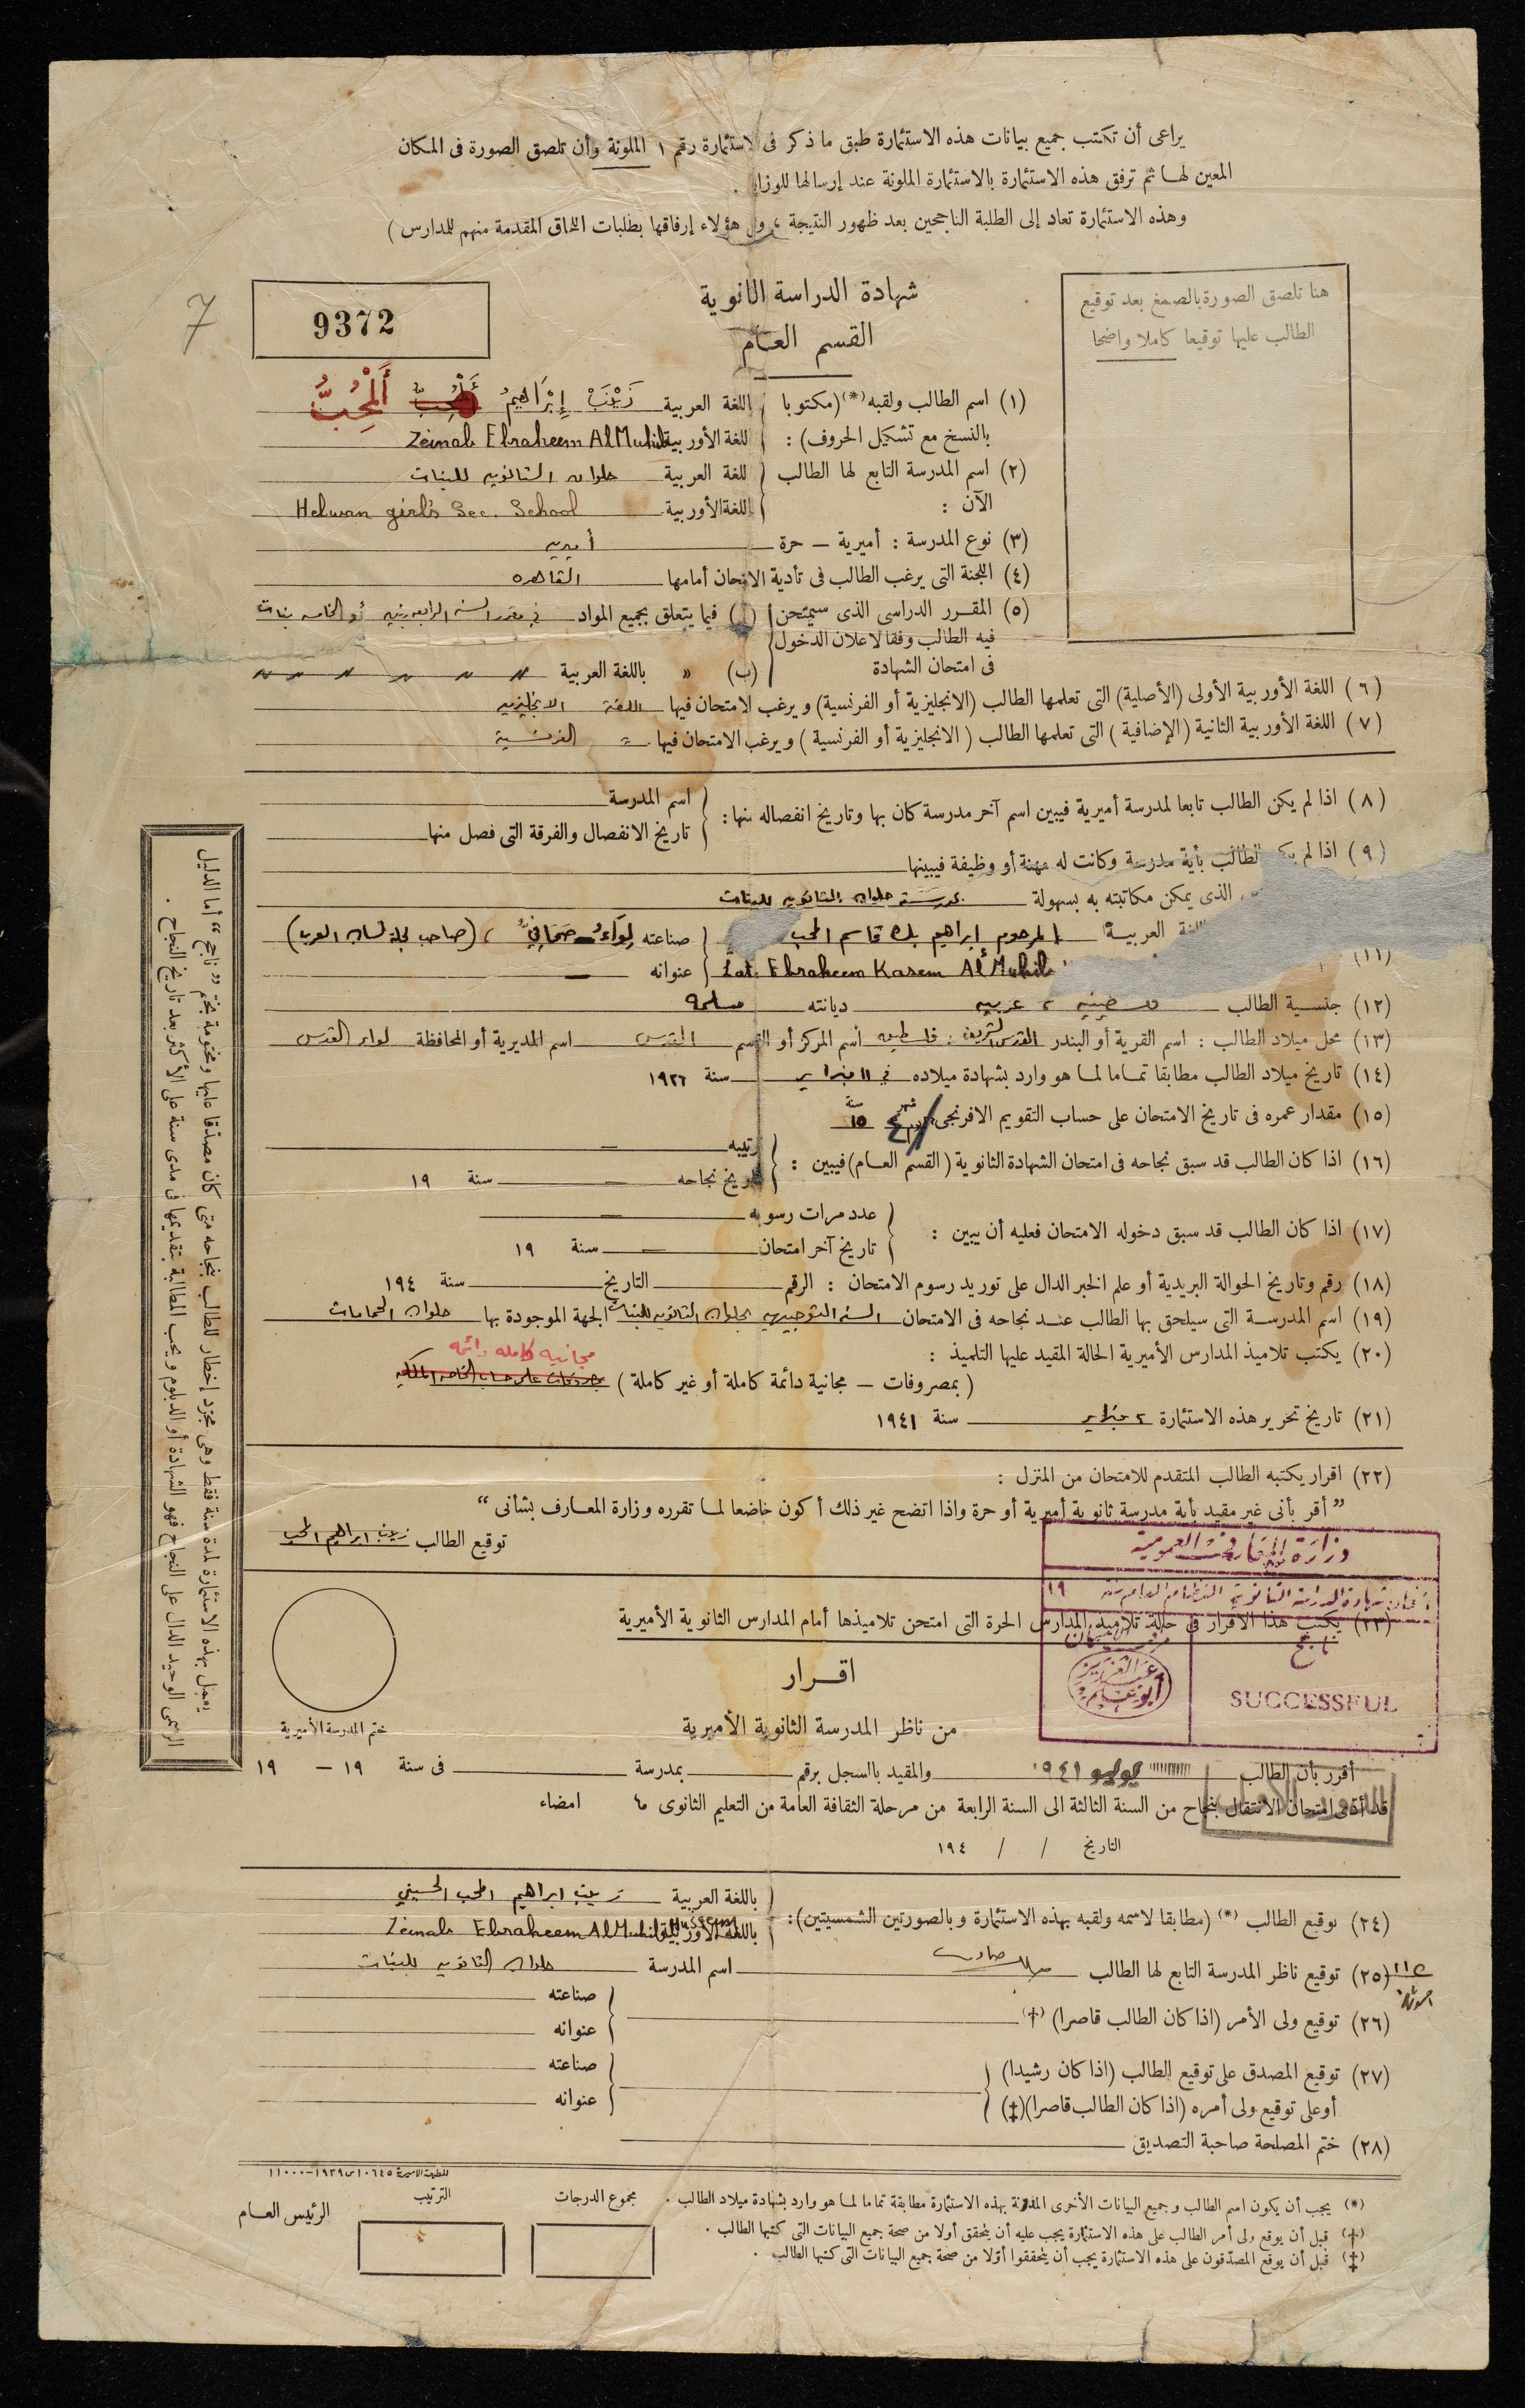 يراعى أن تكتب جميع بيانات هذه الاستمارة طبق ما ذكر فى الاستمارة رقم ١ الملونة وأن تلصق الصورة فى المكان
المعين لها ثم ترفق هذه الاستمارة بالاستمارة الملونة عند إرسالها للوزارة .
وهذه الاستمارة تعاد إلى الطلبة الناجحين بعد ظهور النتيجة ، وعلى هؤلاء إرفاقها بطلبات اللحاق المقدمة منهم للمدارس )
هنا تلصق الصورة بالصمغ بعد توقيع
الطالب عليها توقيعا كاملا واضحا
شهادة الدراسة الثانوية
القسم العام
9372
7
(١) اسم الطالب ولقبه (*) (مكتوبا بالنسخ مع تشكيل الحروف) :
باللغة العربية زَيْنَبْ إِبْرَاهِيمُ أَلْمُحِبُّ
باللغة الأوربية Zeinab Ebraheem Al Muhib
(٢) اسم المدرسة التابع لها الطالب الآن :
باللغة العربية حلوان الثانويه للبنات
باللغة الأوربية Helwan girl's Sec. School
(٣) نوع المدرسة : أميرية – حرة أميريه
(٤) اللجنة التى يرغب الطالب فى تأدية الامتحان أمامها القاهره
(٥) المقرر الدراسى الذى سيمتحن فيه الطالب وفقا لاعلان الدخول فى امتحان الشهادة
(ا) فيما يتعلق بجميع المواد في مقرر السنه الرابعه بنين أو الخامسه بنات
(ب) » باللغة العربية " " " " " "
(٦) اللغة الأوربية الأولى (الأصلية) التى تعلمها الطالب (الانجليزية أو الفرنسية) ويرغب الامتحان فيها اللغة الانجليزيه
(٧) اللغة الأوربية الثانية (الإضافية) التى تعلمها الطالب (الانجليزية أو الفرنسية) ويرغب الامتحان فيها = الفرنسية
(٨) اذا لم يكن الطالب تابعا لمدرسة أميرية فيبين اسم آخر مدرسة كان بها وتاريخ انفصاله منها :
اسم المدرسة
تاريخ الانفصال والفرقة التى فصل منها
(٩) اذا لم يكن الطالب بأية مدرسة وكانت له مهنة أو وظيفة فيبينها
الذى يمكن مكاتبته به بسهولة بمدرسة حلوان الثانويه للبنات
(١١) اللغة العربية المرحوم ابراهيم بك قاسم المحب
صناعته لِوَاءٌ – صَحَافِيٌّ ، (صاحب مجلة لسان العرب)
Late Ebraheem Kasem Al Muhib
عنوانه –
(١٢) جنسية الطالب عربيه ديانته مسلمه
(١٣) محل ميلاد الطالب : اسم القرية أو البندر القدس الشريف ، فلسطين اسم المركز أو القسم القدس اسم المديرية أو المحافظة لواء القدس
(١٤) تاريخ ميلاد الطالب مطابقا تماما لما هو وارد بشهادة ميلاده في ١١ فبراير سنة ١٩٢٦
(١٥) مقدار عمره فى تاريخ الامتحان على حساب التقويم الافرنجى يوم شهر ٤ سنة ١٥
(١٦) اذا كان الطالب قد سبق نجاحه فى امتحان الشهادة الثانوية (القسم العام) فيبين :
ترتيبه –
تاريخ نجاحه – سنة ١٩
(١٧) اذا كان الطالب قد سبق دخوله الامتحان فعليه أن يبين :
عدد مرات رسوبه –
تاريخ آخر امتحان – سنة ١٩
(١٨) رقم وتاريخ الحوالة البريدية أو علم الخبر الدال على توريد رسوم الامتحان : الرقم التاريخ سنة ١٩٤
(١٩) اسم المدرسة التى سيلحق بها الطالب عند نجاحه فى الامتحان السنه التوجيهيه بحلوان الثانويه للبنات الجهة الموجودة بها حلوان الحمامات
(٢٠) يكتب تلاميذ المدارس الأميرية الحالة المقيد عليها التلميذ :
مجانيه كامله دائمه
(بمصروفات – مجانية دائمة كاملة أو غير كاملة) بمصروفات على حساب الخاصه الملكيه
(٢١) تاريخ تحرير هذه الاستمارة ٢ فبراير سنة ١٩٤١
(٢٢) اقرار يكتبه الطالب المتقدم للامتحان من المنزل :
” أقر بأنى غير مقيد بأية مدرسة ثانوية أميرية أو حرة واذا اتضح غير ذلك أكون خاضعا لما تقرره وزارة المعارف بشأنى “
توقيع الطالب زينب ابراهيم المحب
وزارة المعارف العمومية
امتحان شهادة الدراسة الثانوية القسم العام سنة ١٩
ناجح
SUCCESSFUL
عبد العزيز
(٢٣) يكتب هذا الاقرار فى حالة تلاميذ المدارس الحرة التى امتحن تلاميذها أمام المدارس الثانوية الأميرية
اقرار
من ناظر المدرسة الثانوية الأميرية
ختم المدرسة الأميرية
أقرر بأن الطالب يوليو ١٩٤١ والمقيد بالسجل برقم بمدرسة فى سنة ١٩ – ١٩
قد أدى امتحان الانتقال بنجاح من السنة الثالثة الى السنة الرابعة من مرحلة الثقافة العامة من التعليم الثانوى ما امضاء
التاريخ / / ١٩٤
(٢٤) توقيع الطالب (*) (مطابقا لاسمه ولقبه بهذه الاستمارة وبالصورتين الشمسيتين) :
باللغة العربية زينب ابراهيم المحب الحسيني
باللغة الأوربية Zeinab Ebraheem Al Muhib Husseini
(٢٥) توقيع ناظر المدرسة التابع لها الطالب اسم المدرسة حلوان الثانويه للبنات
(٢٦) توقيع ولى الأمر (اذا كان الطالب قاصرا) (†)
صناعته
عنوانه
(٢٧) توقيع المصدق على توقيع الطالب (اذا كان رشيدا)
أو على توقيع ولى أمره (اذا كان الطالب قاصرا) (‡)
صناعته
عنوانه
(٢٨) ختم المصلحة صاحبة التصديق
المطبعة الاميرية ١٠٦٤٥ س ١٩٣٩–١١٠٠٠
(*) يجب أن يكون اسم الطالب وجميع البيانات الأخرى المدونة بهذه الاستمارة مطابقة تماما لما هو وارد بشهادة ميلاد الطالب .
(†) قبل أن يوقع ولى أمر الطالب على هذه الاستمارة يجب عليه أن يتحقق أولا من صحة جميع البيانات التى كتبها الطالب .
(‡) قبل أن يوقع المصدقون على هذه الاستمارة يجب أن يتحققوا أولا من صحة جميع البيانات التى كتبها الطالب .
مجموع الدرجات
الترتيب
الرئيس العام
يعمل بهذه الاستمارة لمدة سنة فقط وهى مجرد إخطار للطالب بنجاحه متى كان مصدقا عليها ومختومة بختم ” ناجح “ أما الدليل
الرسمى الوحيد الدال على النجاح فهو الشهادة أو الدبلوم ويجب المطالبة بتقديمها فى مدى سنة على الأكثر بعد تاريخ النجاح .